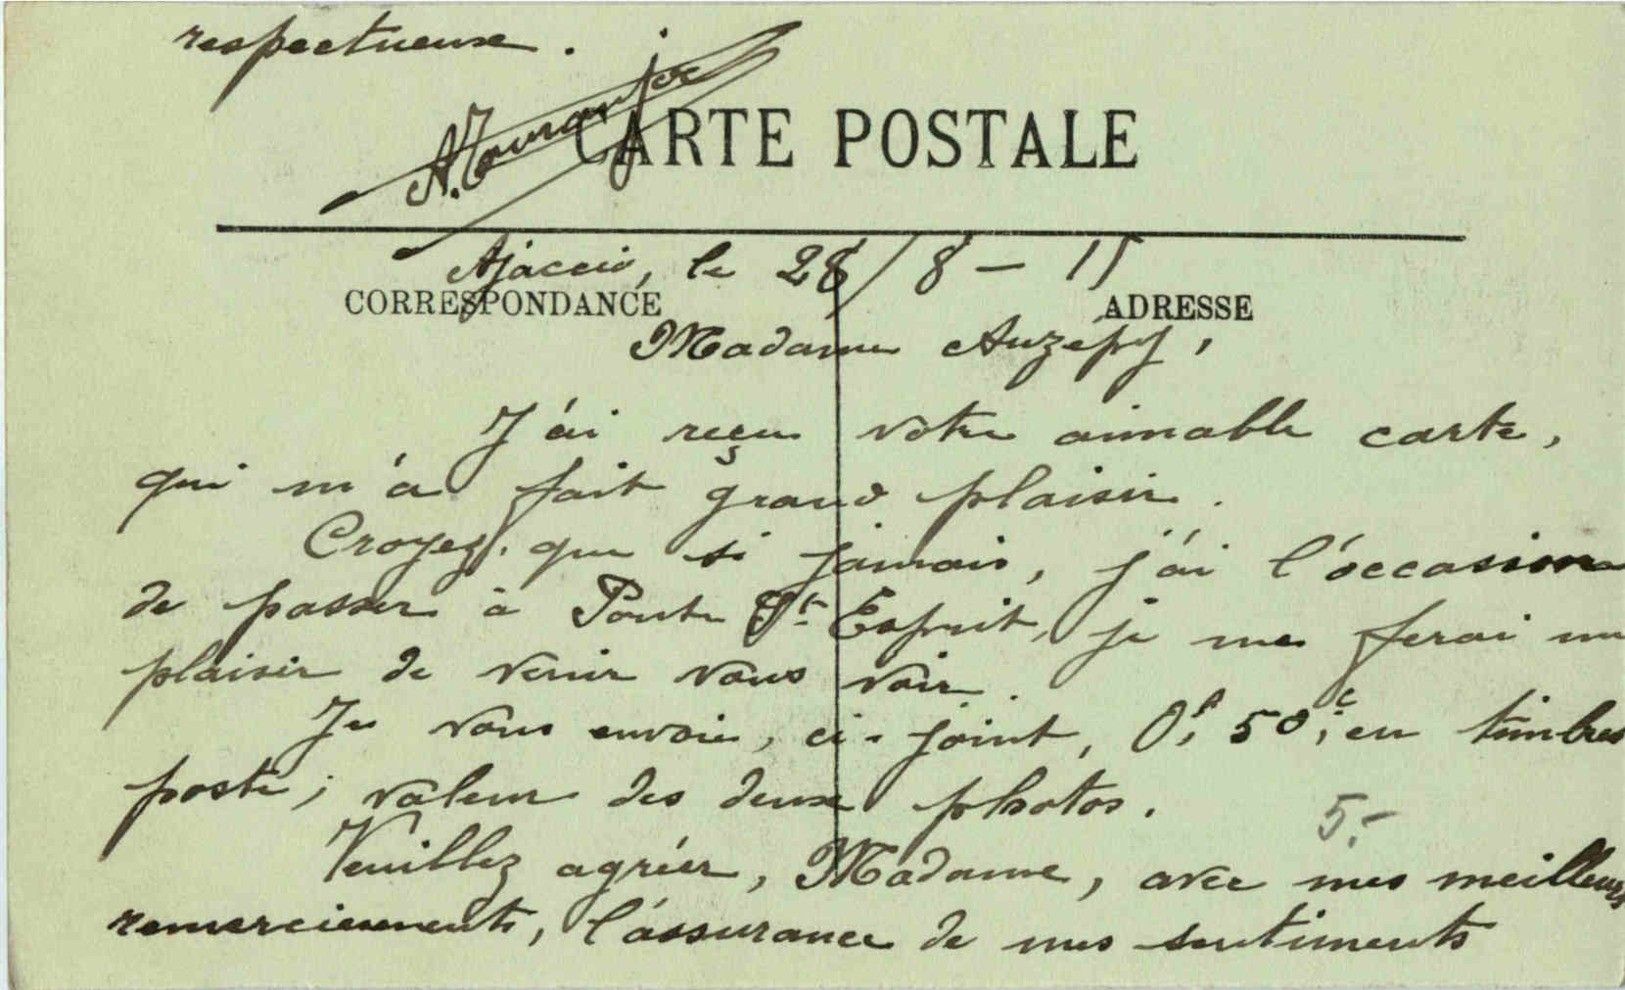 respectueux.
CARTE POSTALE
Ajaccio, le 28/8-15
CORRESPONDANCE
ADRESSE
Madame Auzépy,
J'ai reçu votre aimable carte,
qui m'a fait grand plaisir.
Croyez, que si jamais, j'ai l'occasion
de passer à Pont St Esprit, je me ferai un
plaisir de venir vous voir.
Je vous envoie, ci-joint, 0f,50c, en timbres
poste; valeur des deux photos.
5.-
Veuillez agréer, Madame, avec mes meilleurs
remerciements, l'assurance de mes sentiments